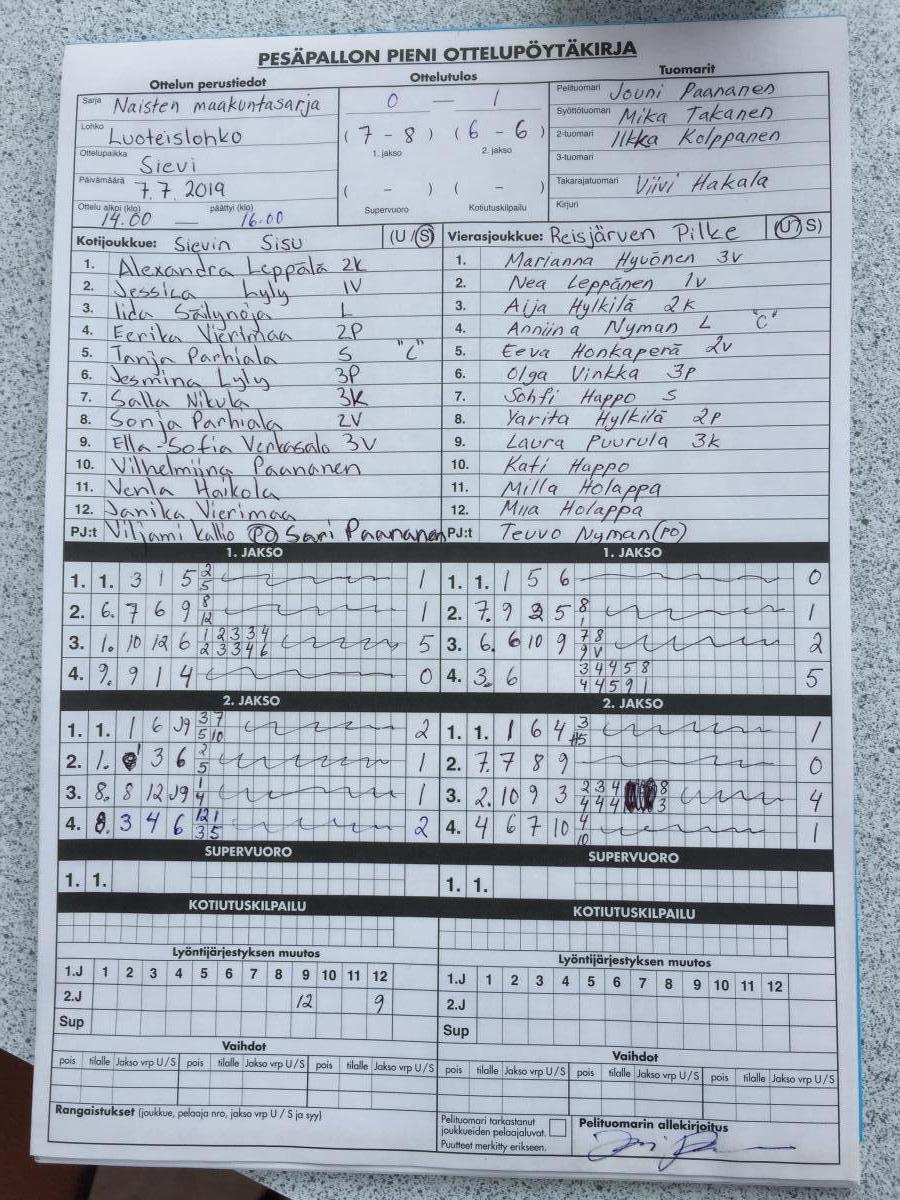 PESÄPALLON PIENI OTTELUPÖYTÄKIRJA
Ottelun perustiedot Ottelutulos Tuomarit
Sarja Naisten maakuntasarja
Lohko Luoteislohko
Ottelupaikka Sievi
Päivämäärä 7.7.2019
Ottelu alkoi (klo) 14.00 — päättyi (klo) 16.00
0 — 1
(7 - 8) (6 - 6)
1. jakso 2. jakso
( - ) ( - )
Supervuoro Kotiutuskilpailu
Pelituomari Jouni Paananen
Syöttötuomari Mika Takanen
2-tuomari Ilkka Kolppanen
3-tuomari
Takarajatuomari Viivi Hakala
Kirjuri
Kotijoukkue: Sievin Sisu (U/S)
1. Alexandra Leppälä 2K
2. Jessica Lyly 1V
3. Iida Säilynoja L
4. Eerika Vierimaa 2P
5. Tanja Parhiala S "C"
6. Jesmina Lyly 3P
7. Salla Nikula 3K
8. Sonja Parhiala 2V
9. Ella-Sofia Verkasalo 3V
10. Vilhelmiina Paananen
11. Venla Haikola
12. Janika Vierimaa
PJ:t Viljami Kallio PO Sari Paananen
Vierasjoukkue: Reisjärven Pilke (U/S)
1. Marianna Hyvönen 3v
2. Nea Leppänen 1v
3. Aija Hylkilä 2k
4. Anniina Nyman L "C"
5. Eeva Honkaperä 2v
6. Olga Vinkka 3p
7. Sohfi Happo S
8. Yarita Hylkilä 2p
9. Laura Puurula 3k
10. Kati Happo
11. Milla Holappa
12. Miia Holappa
PJ:t Teuvo Nyman (PO)
1. JAKSO 1. JAKSO
1. 1. 3 1 5 2/5 1
2. 6. 7 6 9 8/12 1
3. 1. 10 12 6 1/2 2/3 3/3 3/4 4/6 5
4. 9. 9 1 4 0
1. 1. 1 5 6 0
2. 7. 9 2 5 8/1 1
3. 6. 6 10 9 7/9 8/V 2
4. 3. 6 3/4 4/4 4/5 5/9 8/1 5
2. JAKSO 2. JAKSO
1. 1. 1 6 J9 3/5 7/10 2
2. 1. 3 6 2/5 1
3. 8. 8 12 J9 1/4 1
4. 8. 3 4 6 12/3 1/5 2
1. 1. 1 6 4 3/5 1
2. 7. 7 8 9 0
3. 2. 10 9 3 2/4 3/4 4/4 8/3 4
4. 4 6 7 10 4/10 1
SUPERVUORO SUPERVUORO
1. 1. 1. 1.
KOTIUTUSKILPAILU KOTIUTUSKILPAILU
Lyöntijärjestyksen muutos Lyöntijärjestyksen muutos
1.J 1 2 3 4 5 6 7 8 9 10 11 12 1.J 1 2 3 4 5 6 7 8 9 10 11 12
2.J 12 9 2.J
Sup Sup
Vaihdot Vaihdot
pois tilalle Jakso vrp U/S pois tilalle Jakso vrp U/S pois tilalle Jakso vrp U/S pois tilalle Jakso vrp U/S pois tilalle Jakso vrp U/S pois tilalle Jakso vrp U/S
Rangaistukset (joukkue, pelaaja nro, jakso vrp U/S ja syy)
Pelituomari tarkastanut joukkueiden pelaajaluvat.
Puutteet merkitty erikseen.
Pelituomarin allekirjoitus